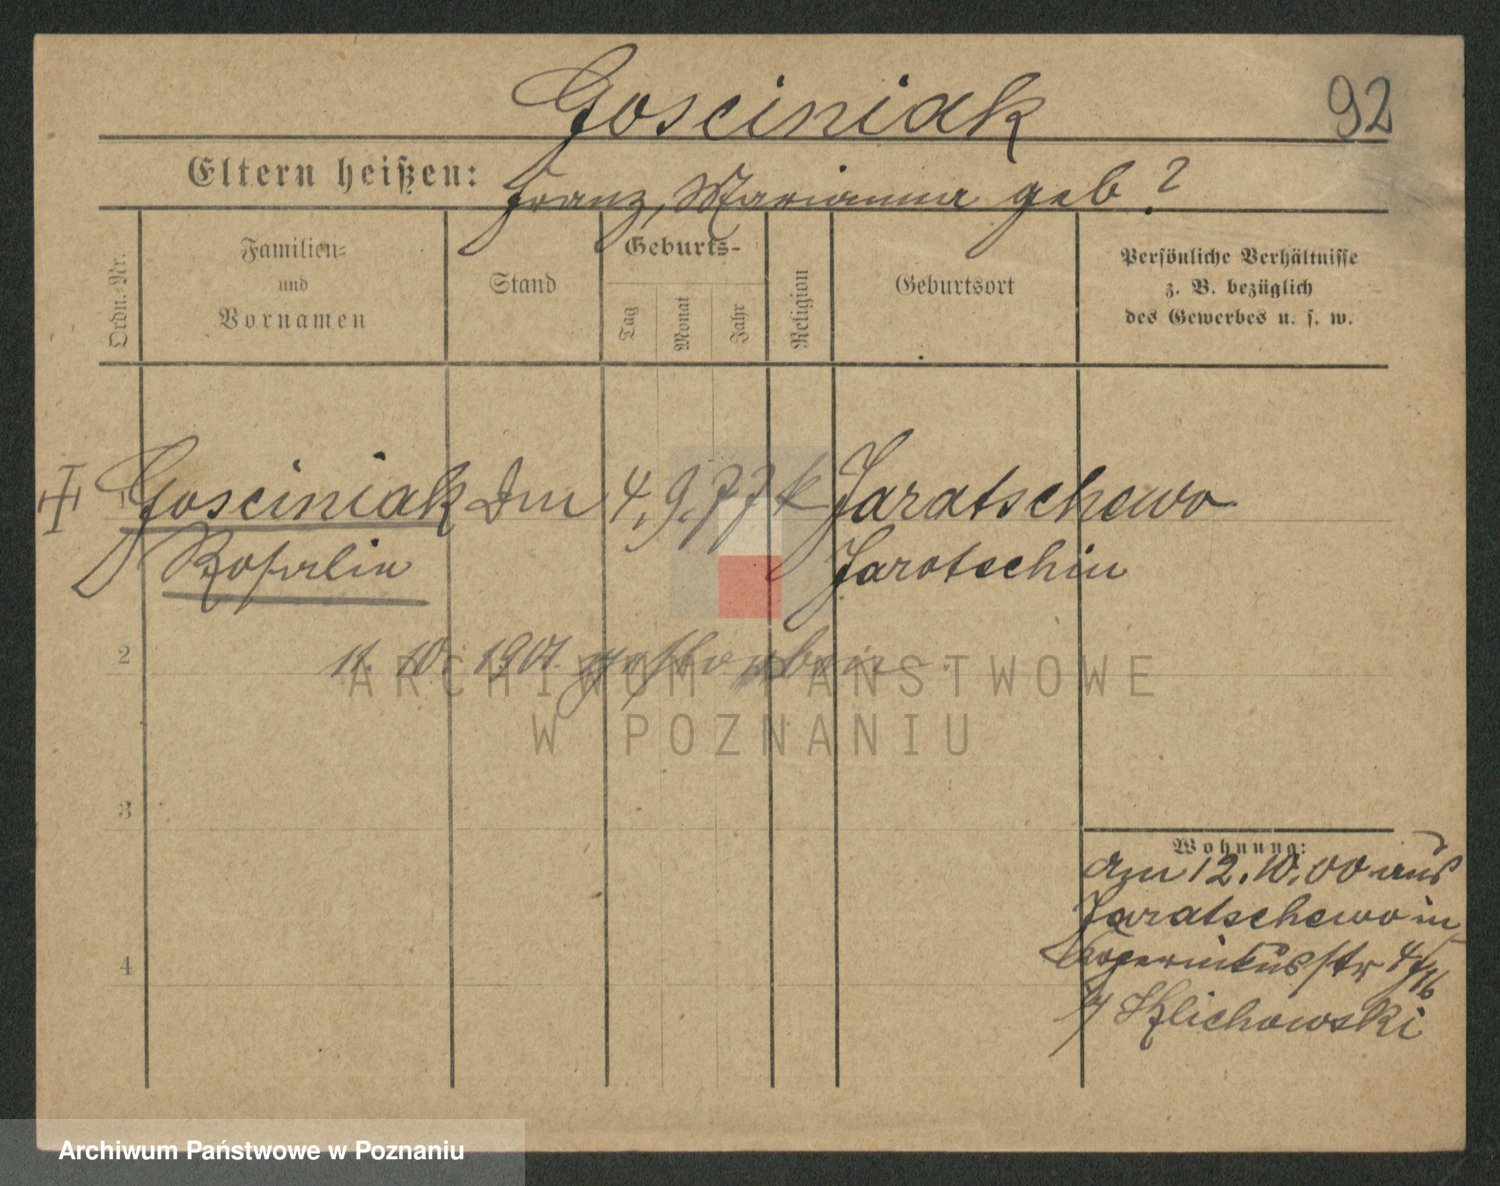 Gosciniak
92
Eltern heißen: Franz, Marianna geb ?
Ordn.-Nr.
Familien-
und
Vornamen
Stand
Geburts-
Tag
Monat
Jahr
Religion
Geburtsort
Persönliche Verhältnisse
z. B. bezüglich
des Gewerbes u. s. w.
1 Gosciniak 4. 9. 77 k Jaratschewo
Jarotschin
11. 10. 1901. gestorben.
2
3
4
Wohnung:
am 12.10.00 aus
Jaratschewo in
Kopernikusstr
Klichowski
ARCHIWUM PAŃSTWOWE
W POZNANIU
Archiwum Państwowe w Poznaniu